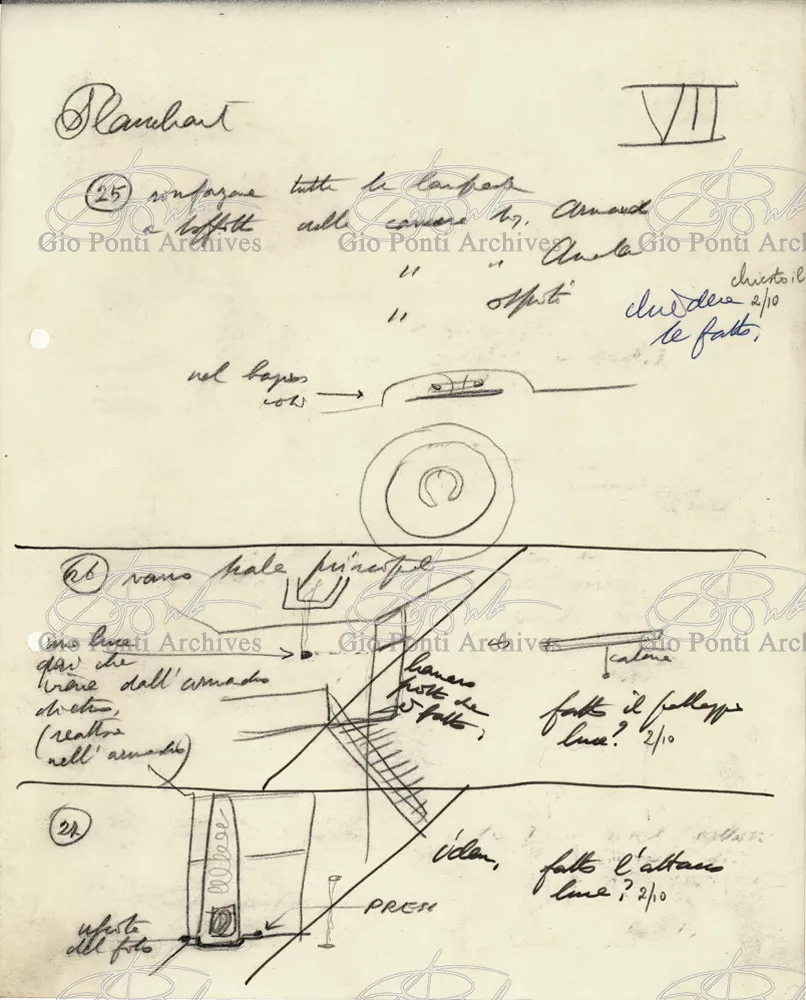 Planchart
VII
25
tutte le lampade
a soffitto delle camere
" "
" ospiti
chiesto il
2/10
chiedere
se fatto.
nel bagno
così
26 vano scala principale
una luce
qui che
viene dall'armadio
dietro,
(reattore
nell'armadio)
fatto
catena
fatto il
luce? 2/10
27
idem,
fatto l'attacco
luce? 2/10
PRESA
del foto
Gio Ponti Archives
Gio Ponti Archives
Gio Ponti Arch
Gio Ponti Archives
Gio Ponti Archives
Gio Ponti Arch